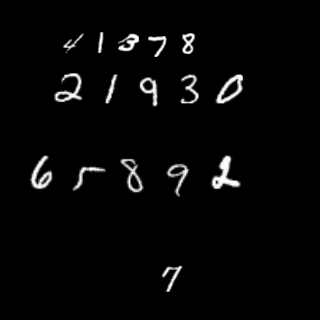 41378
21930
65892
7